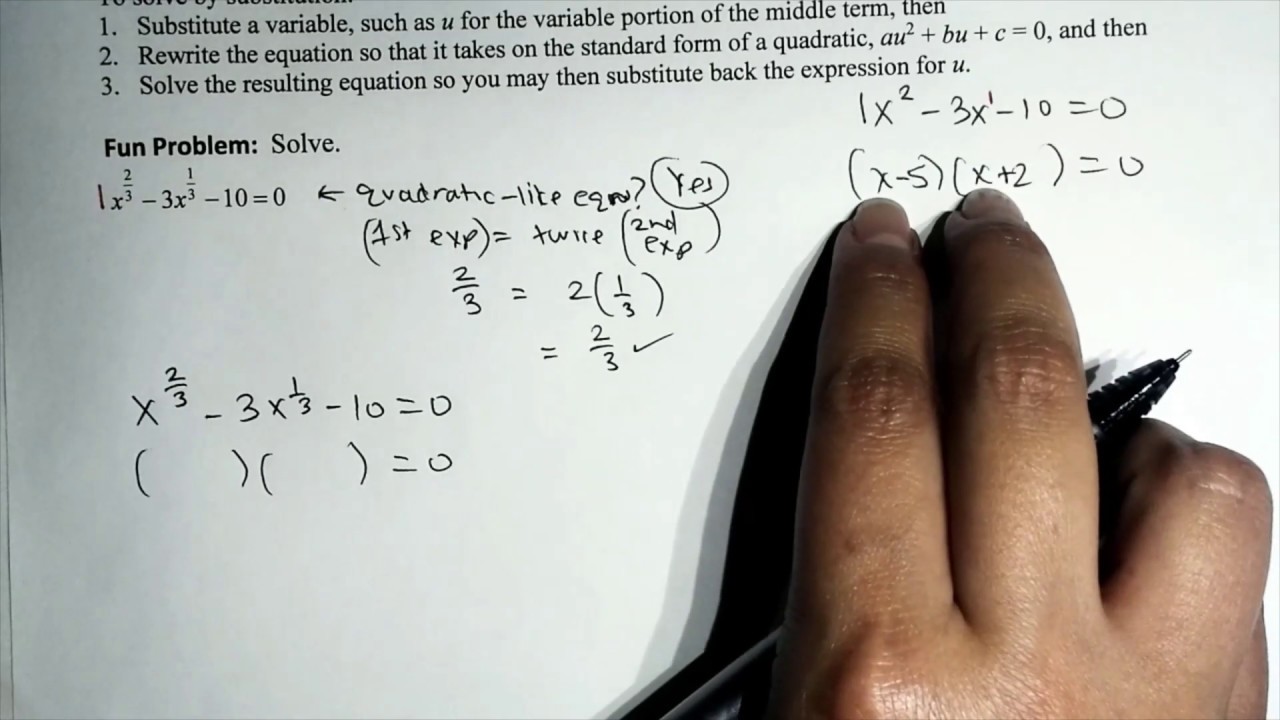 To solve by substitution:
1. Substitute a variable, such as u for the variable portion of the middle term, then
2. Rewrite the equation so that it takes on the standard form of a quadratic, au² + bu + c = 0, and then
3. Solve the resulting equation so you may then substitute back the expression for u.
1x² - 3x¹ - 10 = 0
(x-5)(x+2) = 0
Fun Problem: Solve.
1x^(2/3) – 3x^(1/3) – 10 = 0 ← quadratic-like eqn? Yes
(1st exp) = twice (2nd exp)
2/3 = 2(1/3)
= 2/3 ✓
x^(2/3) - 3x^(1/3) - 10 = 0
( )( ) = 0